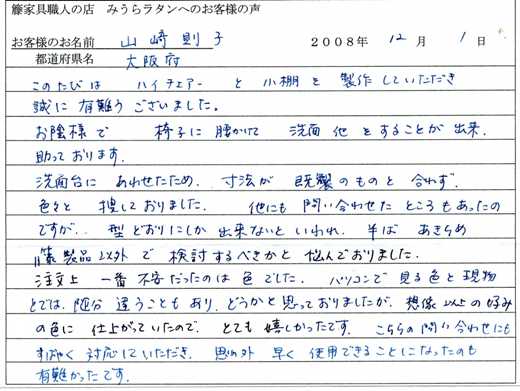 籐家具職人の店　みうらラタンへのお客様の声
お客様のお名前　山崎則子　2008年　12月　1日
都道府県名　大阪府
このたびは　ハイチェアー　と　小棚　を　製作していただき
誠に　有難うございました。
お陰様で　椅子に　腰かけて　洗面　他　をすることが　出来、
助っております。
洗面台に　あわせたため、寸法が　既製のものと　合わず、
色々と　捜しておりました。　他にも　問い合わせた　ところもあったの
ですが、型どおりにしか　出来ないといわれ、半ば　あきらめ
籐製品以外で　検討するべきかと　悩んでおりました。
注文上　一番　不安だったのは　色でした。パソコンで　見る色と　現物
とでは、随分　違うこともあり、どうかと思っておりましたが、想像以上の好み
の色に　仕上がっていたので、とても　嬉しかったです。こちらの問い合わせにも
すばやく　対応していただき、思い外　早く　使用できることになったのも
有難かったです。